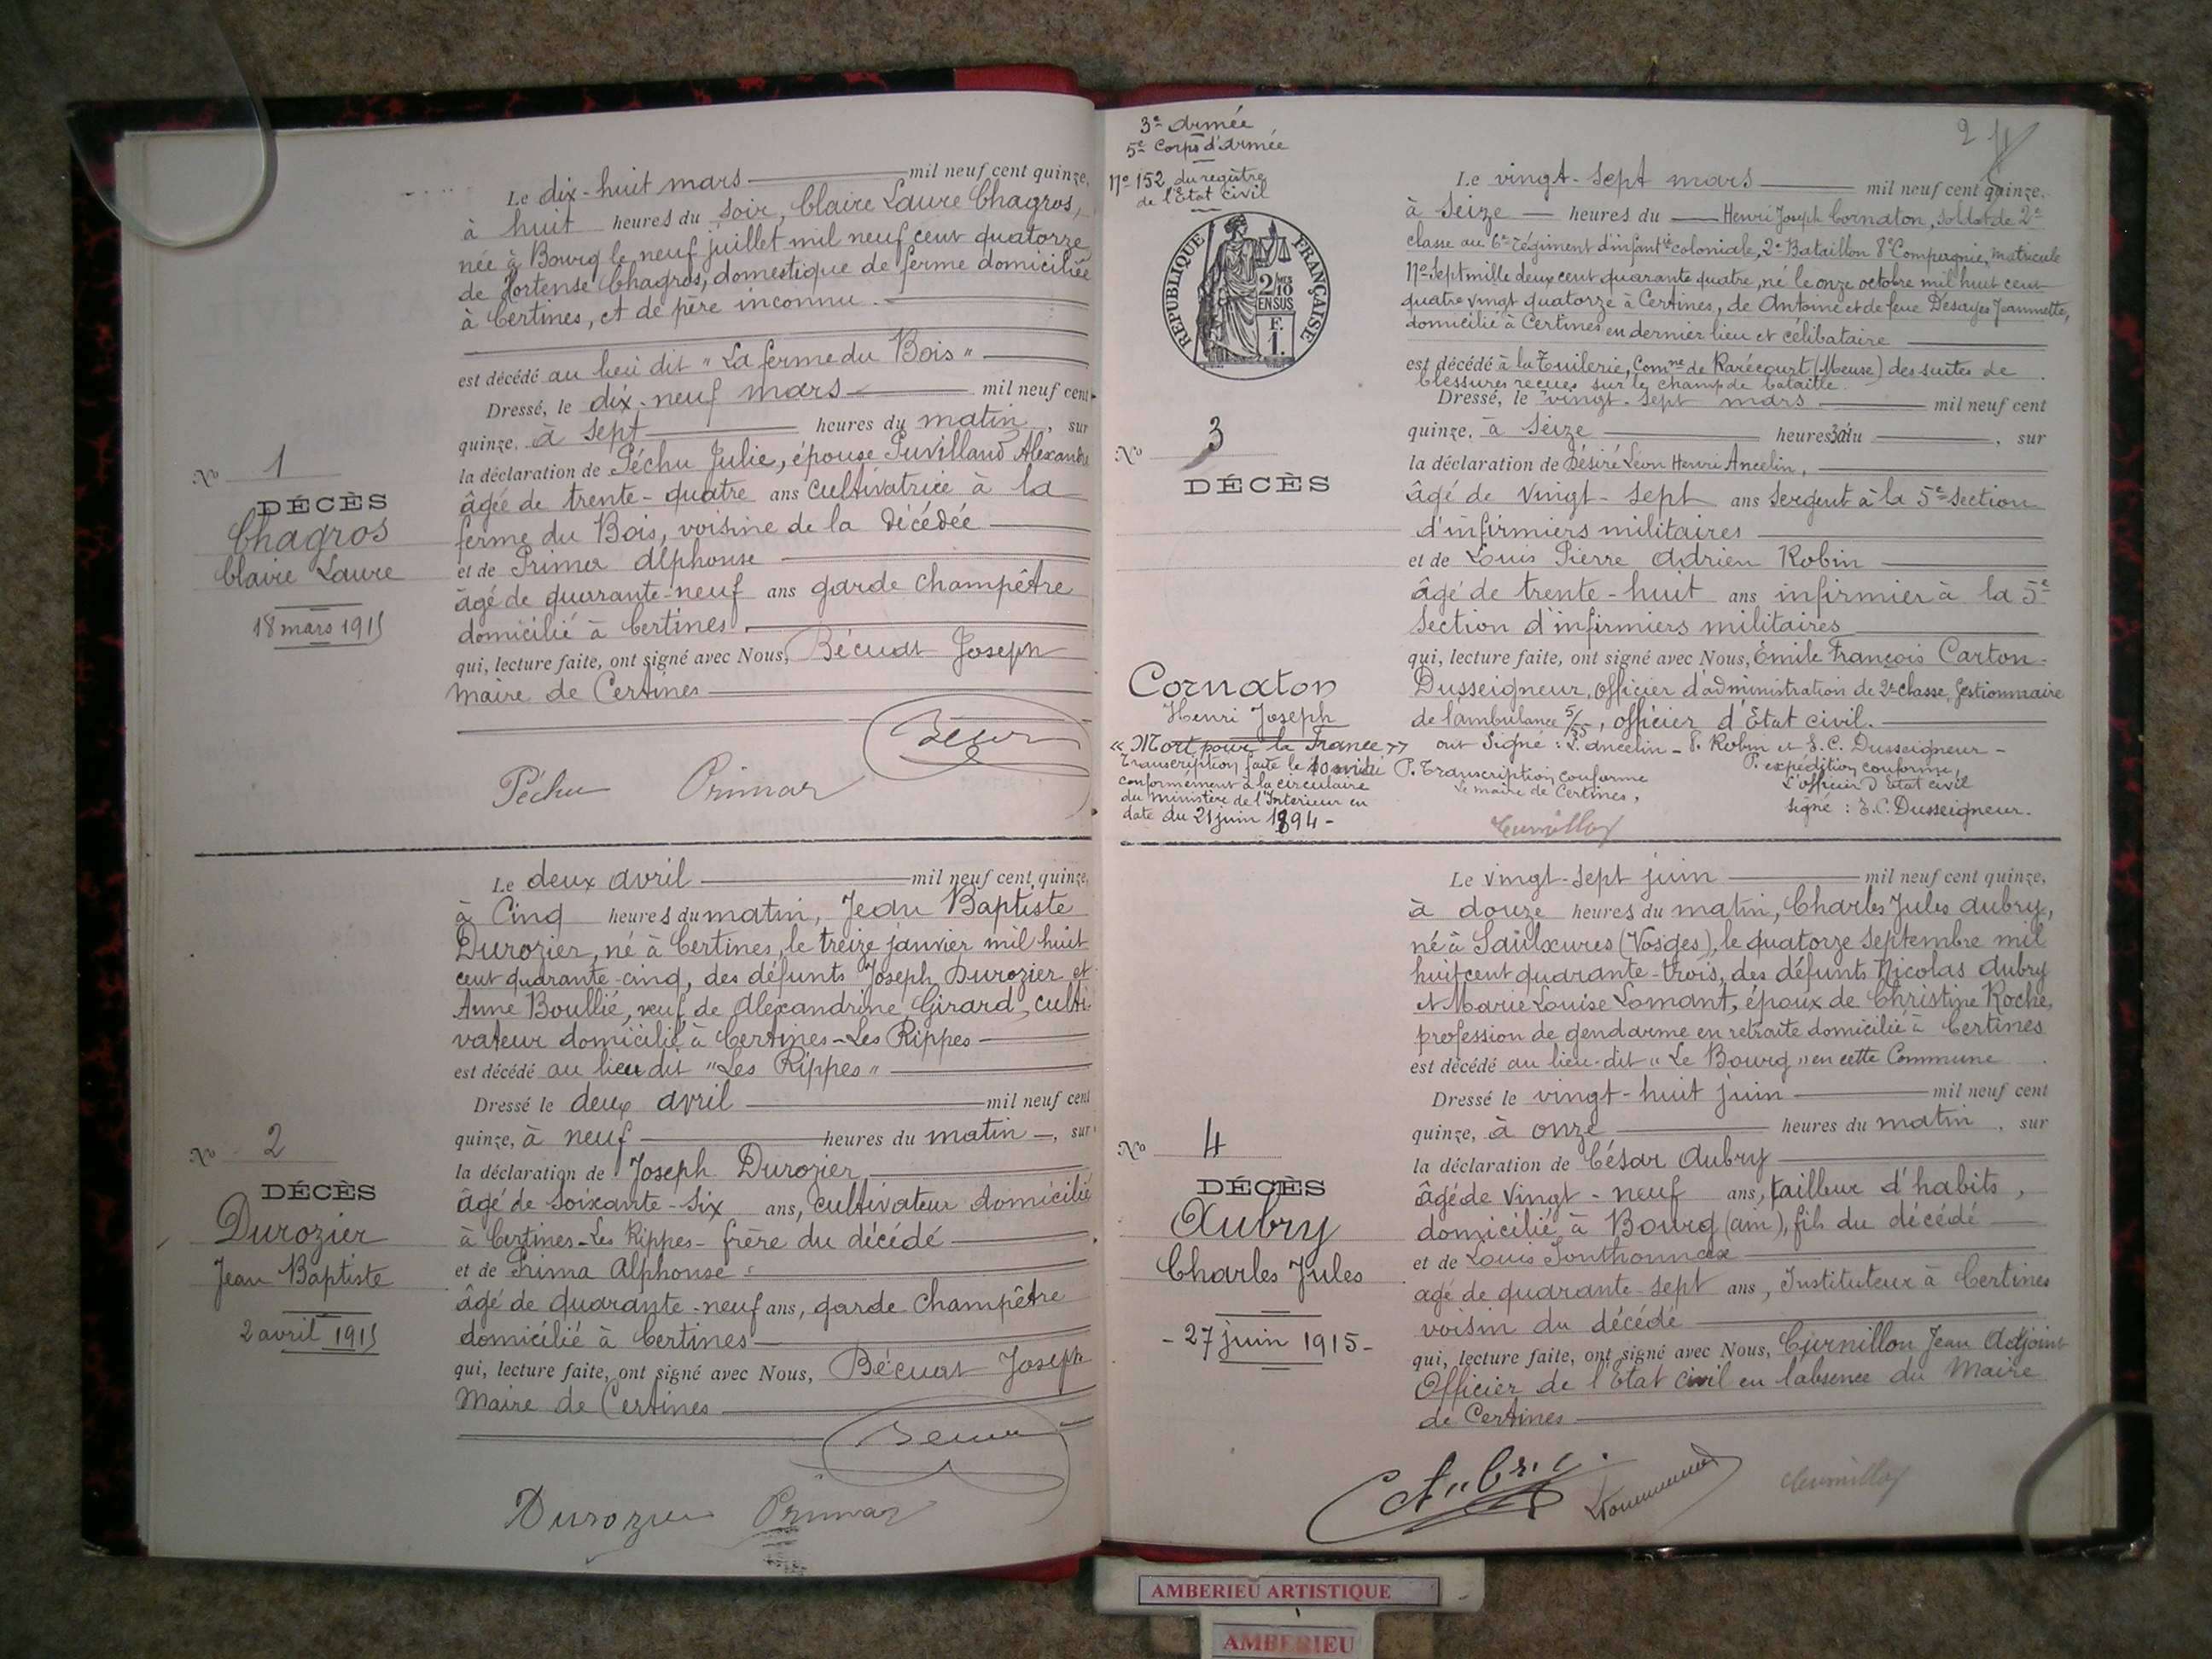 Le dix-huit mars mil neuf cent quinze,
à huit heures du soir, Claire Laure Chagros,
née à Bourg le neuf juillet mil neuf cent quatorze
de Hortense Chagros, domestique de ferme domiciliée
à Certines, et de père inconnu.
est décédé au lieu dit "La ferme du Bois"
Dressé, le dix-neuf mars mil neuf cent
quinze, à sept heures du matin, sur
la déclaration de Péchu Julie, épouse Puvilland Alexandre
âgée de trente-quatre ans cultivatrice à la
ferme du Bois, voisine de la décédée
et de Primar Alphonse
âgé de quarante-neuf ans garde champêtre
domicilié à Certines.
qui, lecture faite, ont signé avec Nous, Bécuat Joseph
maire de Certines
Péchu Primar
No 1
DÉCÈS
Chagros
Claire Laure
18 mars 1915
Le deux avril mil neuf cent quinze,
à cinq heures du matin, Jean Baptiste
Durozier, né à Certines, le treize janvier mil huit
cent quarante-cinq, des défunts Joseph Durozier et
Anne Boullié, veuf de Alexandrine Girard, culti-
vateur domicilié à Certines-Les Rippes
est décédé au lieu dit "Les Rippes"
Dressé le deux avril mil neuf cent
quinze, à neuf heures du matin, sur
la déclaration de Joseph Durozier,
âgé de soixante-six ans, cultivateur domicilié
à Certines-Les Rippes-frère du décédé
et de Prima Alphonse
âgé de quarante-neuf ans, garde champêtre
domicilié à Certines
qui, lecture faite, ont signé avec Nous, Bécuat Joseph
Maire de Certines
Durozier Primar
No 2
DÉCÈS
Durozier
Jean Baptiste
2 avril 1915
3e Armée
5e Corps d'Armée
No 152 du registre
de l'Etat Civil
REPUBLIQUE FRANÇAISE
2/10
EN SUS
F.
1.
2
Le vingt-sept mars mil neuf cent quinze.
à seize heures du Henri Joseph Cornaton, soldat de 2e
classe au 6e régiment d'infantie coloniale, 2e Bataillon 8e Compagnie, matricule
No sept mille deux cent quarante quatre, né le onze octobre mil huit cent
quatre vingt quatorze à Certines, de Antoine et de feue Desayes Jeannette,
domicilié à Certines en dernier lieu et célibataire
est décédé à la Tuilerie, Comne de Rarécourt (Meuse) des suites de
blessures reçues sur le champ de bataille.
Dressé, le vingt-sept mars mil neuf cent
quinze, à seize heures 30 du , sur
la déclaration de Désiré Léon Henri Ancelin,
âgé de vingt-sept ans sergent à la 5e section
d'infirmiers militaires
et de Louis Pierre Adrien Robin
âgé de trente-huit ans infirmier à la 5e
section d'infirmiers militaires
qui, lecture faite, ont signé avec Nous, Emile François Carton-
Dusseigneur, officier d'administration de 2e classe, gestionnaire
de l'ambulance 5/55, officier d'Etat civil.
ont signé : L. Ancelin - P. Robin et E. C. Dusseigneur -
P. expédition conforme,
L'officier d'Etat civil
signé : E. C. Dusseigneur.
P. Transcription conforme
Le maire de Certines,
Curnillon
No 3
DÉCÈS
Cornaton
Henri Joseph
« Mort pour la France »
Transcription faite le 10
conformément à la circulaire
du Ministère de l'Intérieur en
date du 21 juin 1894 -
Le vingt-sept juin mil neuf cent quinze,
à douze heures du matin, Charles Jules Aubry,
né à Saulxures (Vosges), le quatorze septembre mil
huit cent quarante-trois, des défunts Nicolas Aubry
et Marie Louise Lomant, époux de Christine Roche,
profession de gendarme en retraite domicilié à Certines
est décédé au lieu-dit "Le Bourg" en cette Commune
Dressé le vingt-huit juin mil neuf cent
quinze, à onze heures du matin, sur
la déclaration de César Aubry
âgé de vingt-neuf ans, tailleur d'habits,
domicilié à Bourg (ain), fils du décédé
et de Louis Tonthonnaxe
âgé de quarante-sept ans, Instituteur à Certines
voisin du décédé
qui, lecture faite, ont signé avec Nous, Curnillon Jean Adjoint
Officier de l'Etat Civil en l'absence du Maire
de Certines
C Aubry
Curnillon
No 4
DÉCÈS
Aubry
Charles Jules
- 27 juin 1915 -
AMBERIEU ARTISTIQUE
AMBERIEU